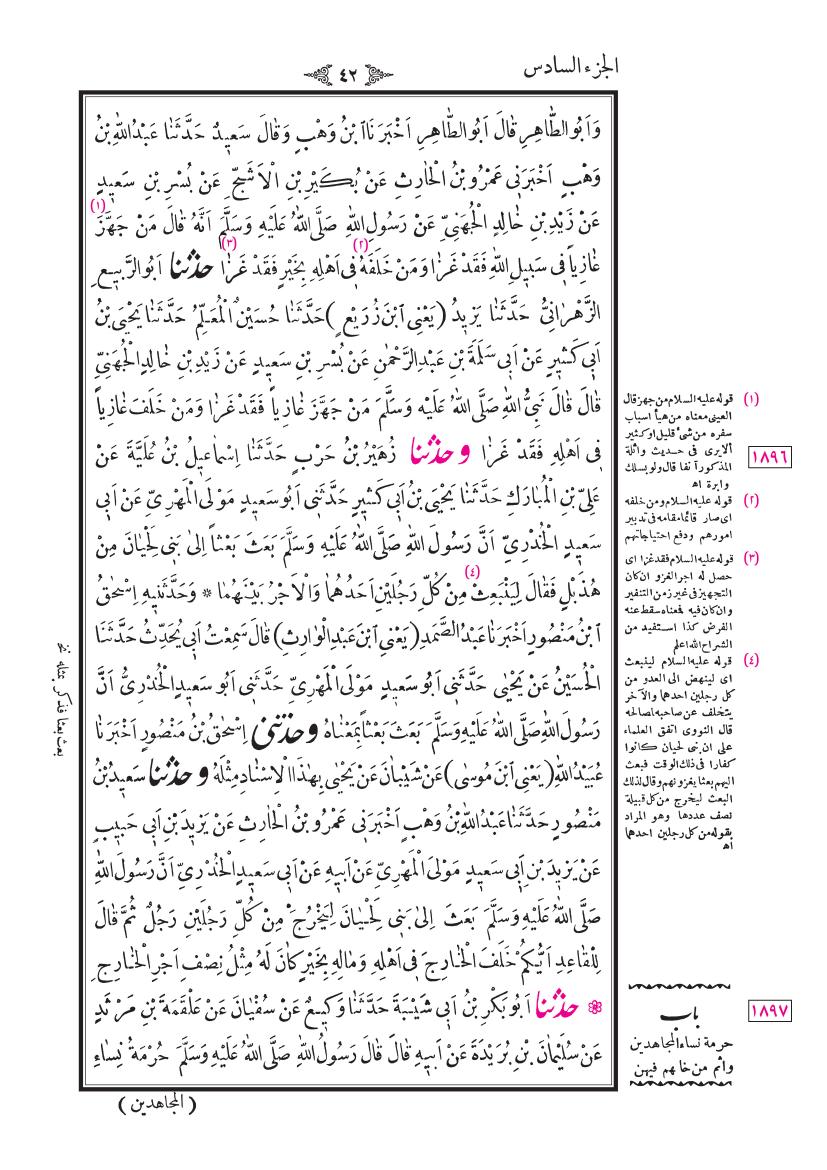 الجزء السادس
٤٢
وَاَبُوالطَّاهِرِ قَالَ اَبُوالطَّاهِرِ اَخْبَرَنَا ابْنُ وَهْبٍ وَقَالَ سَعِيدٌ حَدَّثَنَا عَبْدُاللّٰهِ بْنُ
وَهْبٍ اَخْبَرَنِى عَمْرُو بْنُ الْحَارِثِ عَنْ بُكَيْرِ بْنِ الْاَشَجِّ عَنْ بُسْرِ بْنِ سَعِيدٍ
عَنْ زَيْدِ بْنِ خَالِدٍ الْجُهَنِىِّ عَنْ رَسُولِ اللّٰهِ صَلَّى اللّٰهُ عَلَيْهِ وَسَلَّمَ اَنَّهُ قَالَ مَنْ جَهَّزَ (١)
غَازِياً فِى سَبِيلِ اللّٰهِ فَقَدْ غَزَا وَمَنْ خَلَفَهُ (٢) فِى اَهْلِهِ بِخَيْرٍ فَقَدْ غَزَا (٣) حدثنا اَبُوالرَّبِيعِ
الزَّهْرَانِىُّ حَدَّثَنَا يَزِيدُ (يَعْنِى ابْنَ زُرَيْعٍ) حَدَّثَنَا حُسَيْنٌ الْمُعَلِّمُ حَدَّثَنَا يَحْيَى بْنُ
اَبِى كَثِيرٍ عَنْ اَبِى سَلَمَةَ بْنِ عَبْدِالرَّحْمٰنِ عَنْ بُسْرِ بْنِ سَعِيدٍ عَنْ زَيْدِ بْنِ خَالِدٍ الْجُهَنِىِّ
قَالَ قَالَ نَبِىُّ اللّٰهِ صَلَّى اللّٰهُ عَلَيْهِ وَسَلَّمَ مَنْ جَهَّزَ غَازِياً فَقَدْ غَزَا وَمَنْ خَلَفَ غَازِياً
فِى اَهْلِهِ فَقَدْ غَزَا وحدثنا زُهَيْرُ بْنُ حَرْبٍ حَدَّثَنَا اِسْمَاعِيلُ بْنُ عُلَيَّةَ عَنْ
عَلِىِّ بْنِ الْمُبَارَكِ حَدَّثَنَا يَحْيَى بْنُ اَبِى كَثِيرٍ حَدَّثَنِى اَبُو سَعِيدٍ مَوْلَى الْمَهْرِىِّ عَنْ اَبِى
سَعِيدٍ الْخُدْرِىِّ اَنَّ رَسُولَ اللّٰهِ صَلَّى اللّٰهُ عَلَيْهِ وَسَلَّمَ بَعَثَ بَعْثاً اِلَى بَنِى لَحْيَانَ مِنْ
هُذَيْلٍ فَقَالَ لِيَنْبَعِثْ (٤) مِنْ كُلِّ رَجُلَيْنِ اَحَدُهُمَا وَالْاَجْرُ بَيْنَهُمَا * وَحَدَّثَنِيهِ اِسْحٰقُ
ابْنُ مَنْصُورٍ اَخْبَرَنَا عَبْدُالصَّمَدِ (يَعْنِى ابْنَ عَبْدِالْوَارِثِ) قَالَ سَمِعْتُ اَبِى يُحَدِّثُ حَدَّثَنَا
الْحُسَيْنُ عَنْ يَحْيَى حَدَّثَنِى اَبُو سَعِيدٍ مَوْلَى الْمَهْرِىِّ حَدَّثَنِى اَبُو سَعِيدٍ الْخُدْرِىُّ اَنَّ
رَسُولَ اللّٰهِ صَلَّى اللّٰهُ عَلَيْهِ وَسَلَّمَ بَعَثَ بَعْثاً بِمَعْنَاهُ وحدثنى اِسْحٰقُ بْنُ مَنْصُورٍ اَخْبَرَنَا
عُبَيْدُاللّٰهِ (يَعْنِى ابْنَ مُوسٰى) عَنْ شَيْبَانَ عَنْ يَحْيَى بِهٰذَا الْاِسْنَادِ مِثْلَهُ وحدثنا سَعِيدُ بْنُ
مَنْصُورٍ حَدَّثَنَا عَبْدُاللّٰهِ بْنُ وَهْبٍ اَخْبَرَنِى عَمْرُو بْنُ الْحَارِثِ عَنْ يَزِيدَ بْنِ اَبِى حَبِيبٍ
عَنْ يَزِيدَ بْنِ اَبِى سَعِيدٍ مَوْلَى الْمَهْرِىِّ عَنْ اَبِيهِ عَنْ اَبِى سَعِيدٍ الْخُدْرِىِّ اَنَّ رَسُولَ اللّٰهِ
صَلَّى اللّٰهُ عَلَيْهِ وَسَلَّمَ بَعَثَ اِلَى بَنِى لَحْيَانَ لِيَخْرُجْ مِنْ كُلِّ رَجُلَيْنِ رَجُلٌ ثُمَّ قَالَ
لِلْقَاعِدِ اَيُّكُمْ خَلَفَ الْخَارِجَ فِى اَهْلِهِ وَمَالِهِ بِخَيْرٍ كَانَ لَهُ مِثْلُ نِصْفِ اَجْرِ الْخَارِجِ
حدثنا اَبُو بَكْرِ بْنُ اَبِى شَيْبَةَ حَدَّثَنَا وَكِيعٌ عَنْ سُفْيَانَ عَنْ عَلْقَمَةَ بْنِ مَرْثَدٍ
عَنْ سُلَيْمَانَ بْنِ بُرَيْدَةَ عَنْ اَبِيهِ قَالَ قَالَ رَسُولُ اللّٰهِ صَلَّى اللّٰهُ عَلَيْهِ وَسَلَّمَ حُرْمَةُ نِسَاءِ
(المجاهدين)
(١) قوله عليه السلام من جهز قال
العينى معناه من هيأ اسباب
سفره من شئ قليل او كثير
ألا يرى فى حديث واثلة
المذكور آنفا قال ولو بسلك
وابرة اه
(٢) قوله عليه السلام ومن خلفه
اى صار قائما مقامه فى تدبير
امورهم ودفع احتياجاتهم
(٣) قوله عليه السلام فقد غزا اى
حصل له اجر الغزو ان كان
التجهيز فى غير زمن التنفير
وان كان فيه فمعناه سقط عنه
الفرض كذا استفيد من
الشراح الله اعلم
(٤) قوله عليه السلام لينبعث
اى لينهض الى العدو من
كل رجلين احدهما والآخر
يتخلف عن صاحبه لمصالحه
قال النووى اتفق العلماء
على ان بنى لحيان كانوا
كفارا فى ذلك الوقت فبعث
اليهم بعثا يغزونهم وقال لذلك
البعث ليخرج من كل قبيلة
نصف عددها وهو المراد
بقوله من كل رجلين احدهما
اه
١٨٩٦
١٨٩٧
باب
حرمة نساء المجاهدين
واثم من خانهم فيهن
بعث بعثا فذكر بمثله نخ